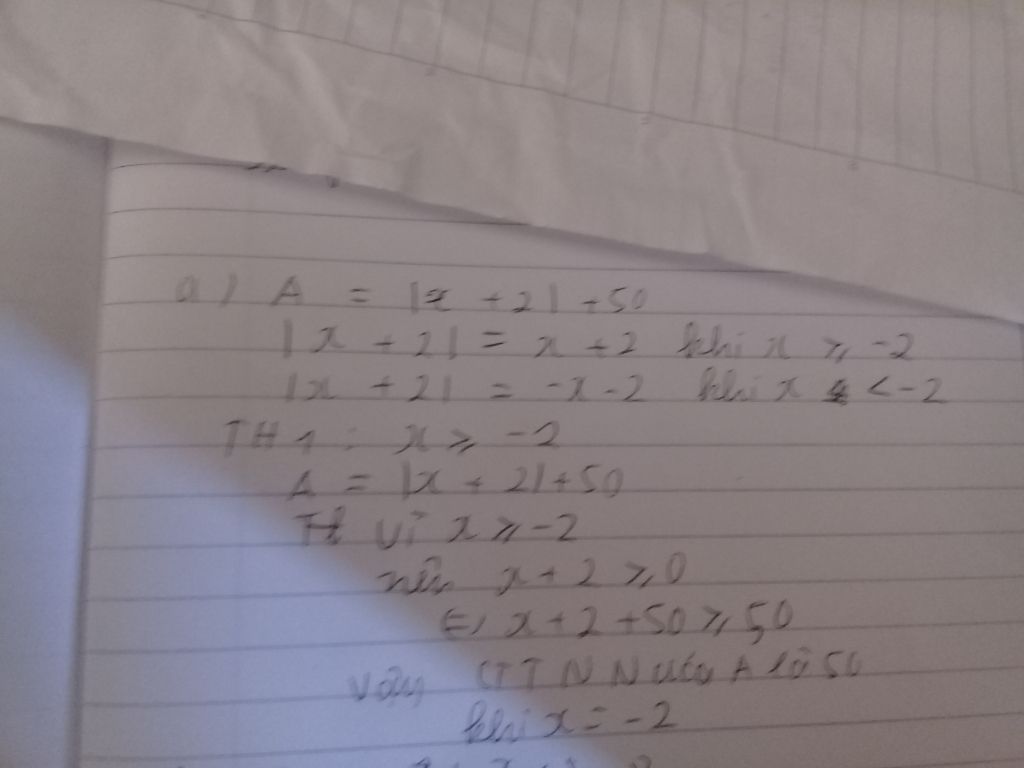 a) A = |x + 2| + 50
|x + 2| = x + 2 khi x ≥ -2
|x + 2| = -x - 2 khi x < -2
TH1: x ≥ -2
A = |x + 2| + 50
Vì x ≥ -2
nên x + 2 ≥ 0
⇔ x + 2 + 50 ≥ 50
Vậy GTNN của A là 50
khi x = -2